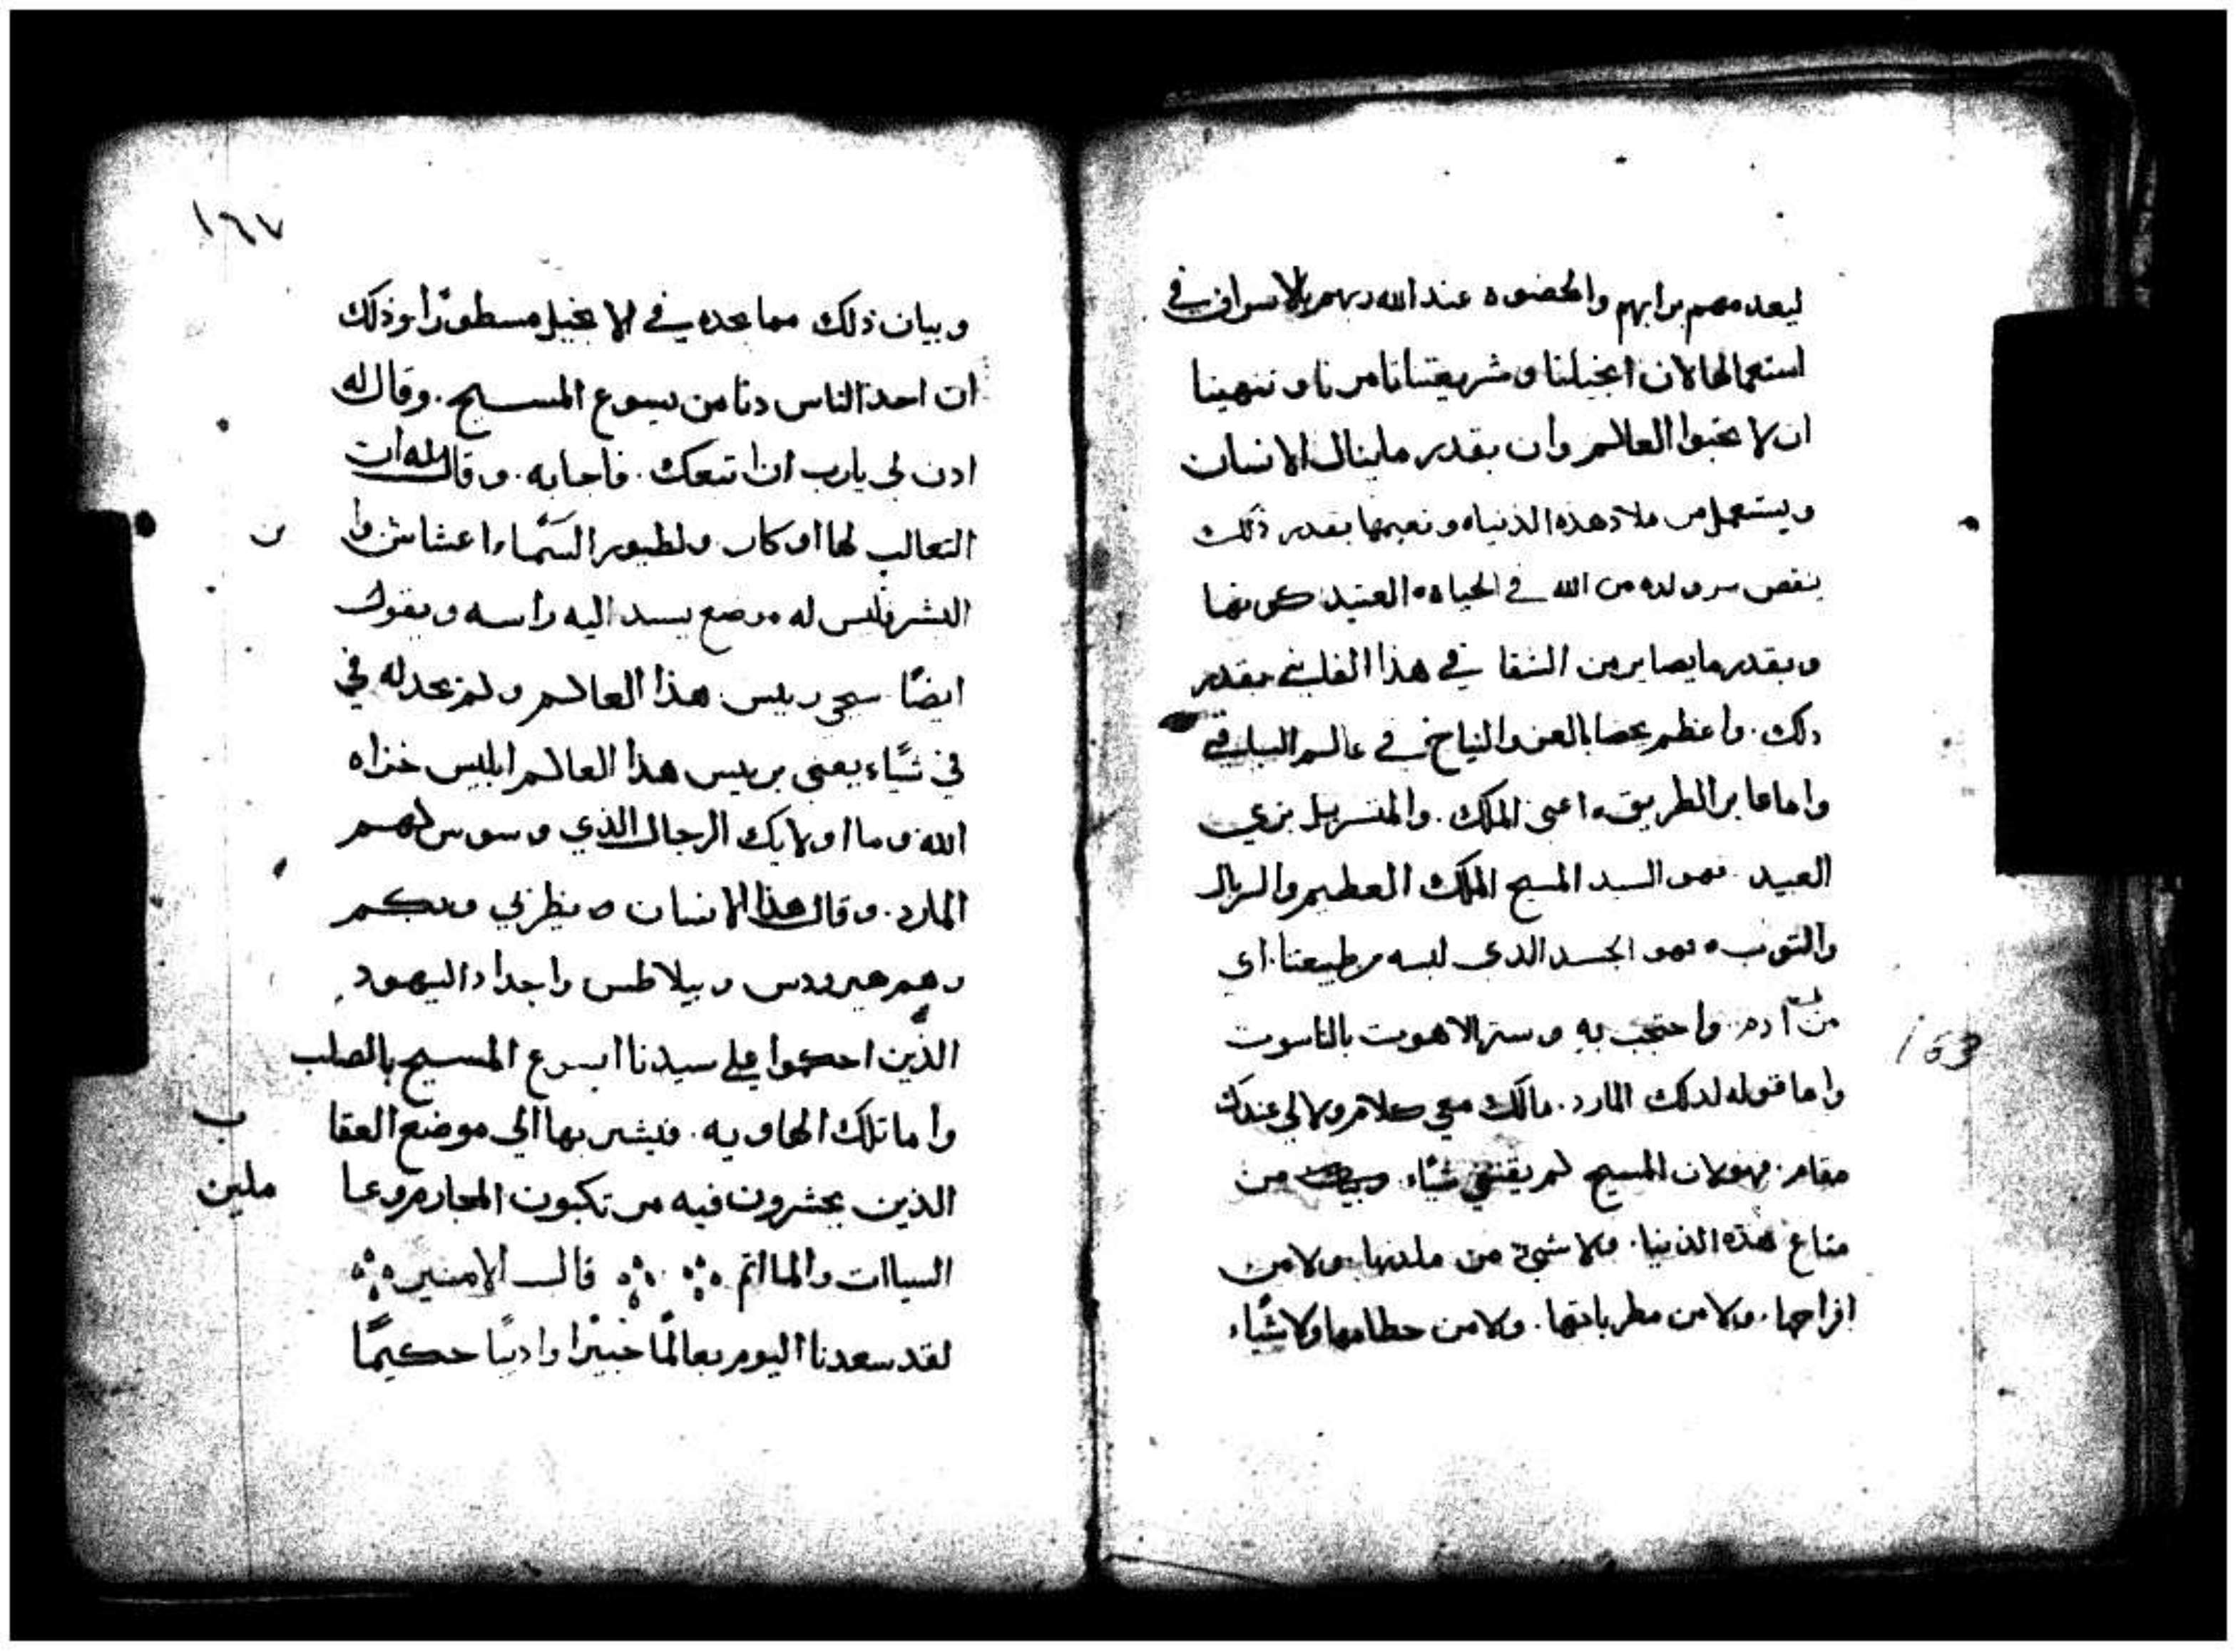 ليعدمهم برابهم والحضوه عند الله ربهم بالاسراف في
استعمالها لان انجيلنا وشريعتنا تامرنا وتنهينا
ان لا نحبوا العالم وان بقدر ما ينال الانسان
ويستعمل من ملاد هذه الدنياه ونعيمها بقدر ذلك
ينقص من الله في الحياه العتيد كونها
وبقدر ما يصابر من الشقا في هذا الفاني بقدر
دلك واعظم يحضا بالعز والنياح في عالم الباقي
واما عابر الطريق اعني الملك. والمتسربل بزي
العبيد فهو السيد المسيح الملك العظيم والسربال
والتوب فهو الجسد الدي لبسه من طبيعتنا. اي
من ادم. واحتجب به وستر الاهوت بالناسوت
واما قوله لدلك المارد. مالك معي كلام ولا لي عندك
مقام. فهو لان المسيح لم يقتني شيًاء من
متاع هذه الدنيا. ولا شيئ من ملدتها. ولا من
افراحها. ولا من مطرباتها. ولا من حطامها ولا شيًاء
163
١٦٧
وبيان ذلك مما نجده في الانجيل مسطورًا وذلك
ان احد الناس دنا من يسوع المسيح. وقال له
ادن لي يارب ان اتبعك. فاجابه. وقال له ان
التعالب لها اوكار ولطيور السَّماء اعشاش وا
ن
البشر فليس له موضع يسند اليه راسه ويقول
ايضًا سيجي رييس هذا العالم ولم يجد له في
في شيًاء يعني برييس هذا العالم ابليس خزاه
الله وما اولايك الرجال الذي وسوس لهم
المارد. وقال هذا الانسان ينظرني وبكم
وهم هيرودس وبيلاطس واجناد اليهود
الذين احكموا على سيدنا ايسوع المسيح بالصلب
واما تلك الهاويه. فيشير بها الي موضع العقا
ب
الذين يحشرون فيه مرتكبون المحارم وعا
ملين
السياات والمااتم قال الامنير
لقد سعدنا اليوم بعالمًا خبيرًا واديبًا حكيمًا